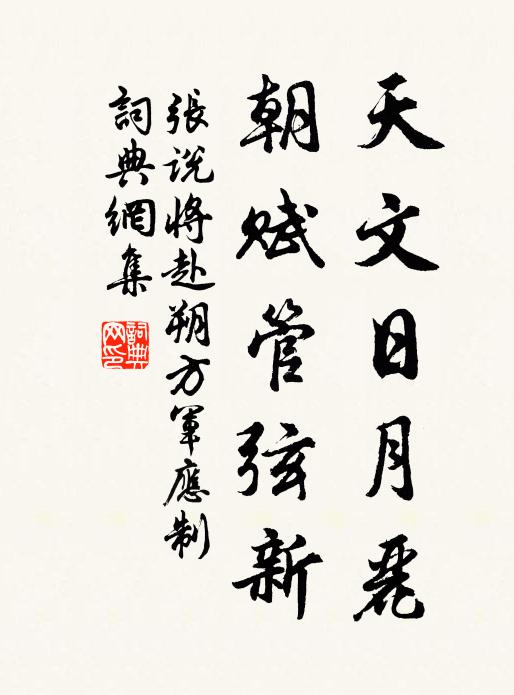 天文日月麗
朝賦管弦新
張說將赴朔方軍應制
詞典網集
詞典网印